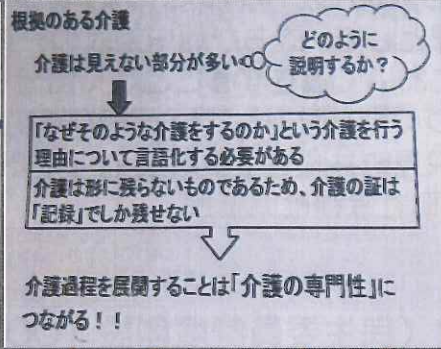 根拠のある介護
介護は見えない部分が多い
どのように
説明するか？
「なぜそのような介護をするのか」という介護を行う
理由について言語化する必要がある
介護は形に残らないものであるため、介護の証は
「記録」でしか残せない
介護過程を展開することは「介護の専門性」に
つながる！！